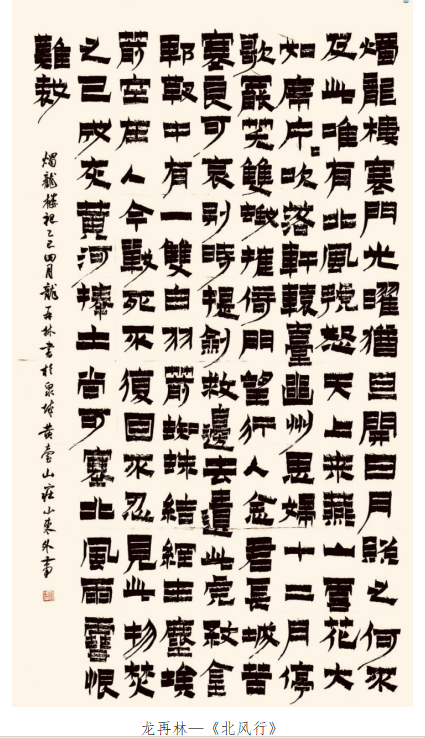 燭龍棲寒門光曜猶旦開日月照之何不
及此唯有北風號怒天上來燕山雪花大
如席片々吹落軒轅臺幽州思婦十二月停
歌罷笑雙蛾摧倚門望行人念君長城苦
寒良可哀別時提劍救邊去遺此虎文金
鞞靫中有一雙白羽箭蜘蛛結網生塵埃
箭空在人今戰死不復回不忍見此物焚
之已成灰黃河捧土尚可塞北風雨雪恨
難裁
燭龍棲 乙巳四月龍再林書於泉城黄臺山莊小東外齋
龙再林—《北风行》